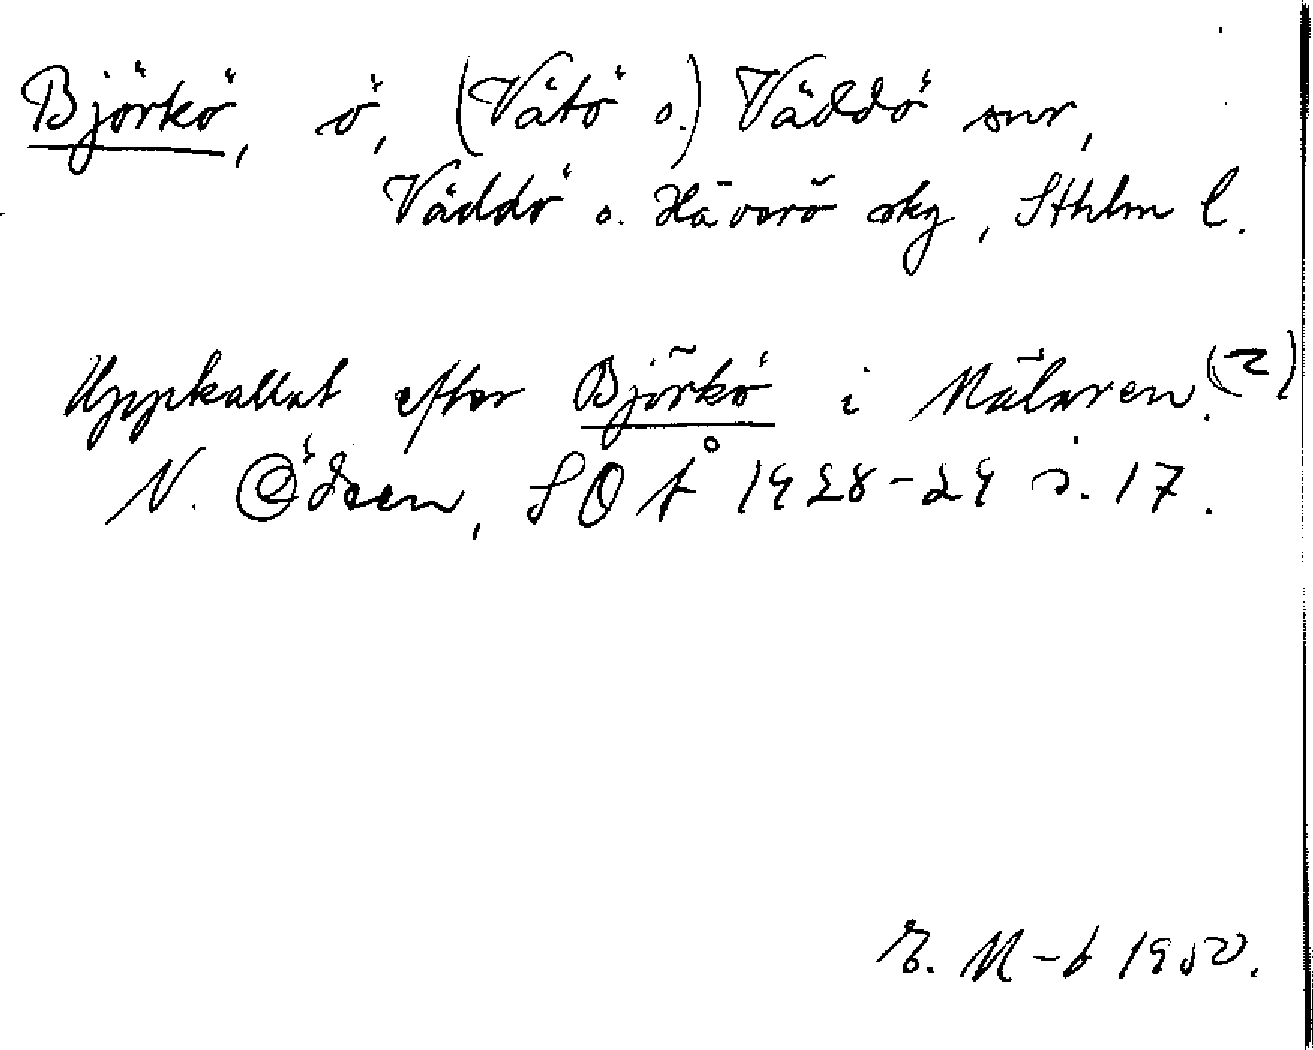 Björkö, ö, (Vätö o.) Väddö snr,
Väddö o. Häverö skg, Sthlm l.
Uppkallat efter Björkö i Mälaren.(2)
N. Ödeen, SOÅ 1928-29 s. 17.
E. M-b 1950.